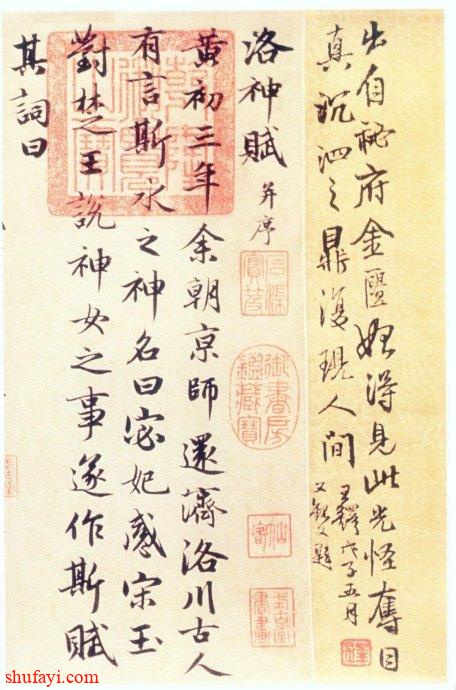 出自秘府金匱始得見此光怪奪目
真沉泗之鼎復現人間
王鐸戊子五月
又觀又題
洛神賦 并序
黃初三年余朝京師還濟洛川古人
有言斯水之神名曰宓妃感宋玉
對楚王說神女之事遂作斯賦
其詞曰
御書房
鑑藏寶
shufayi.com